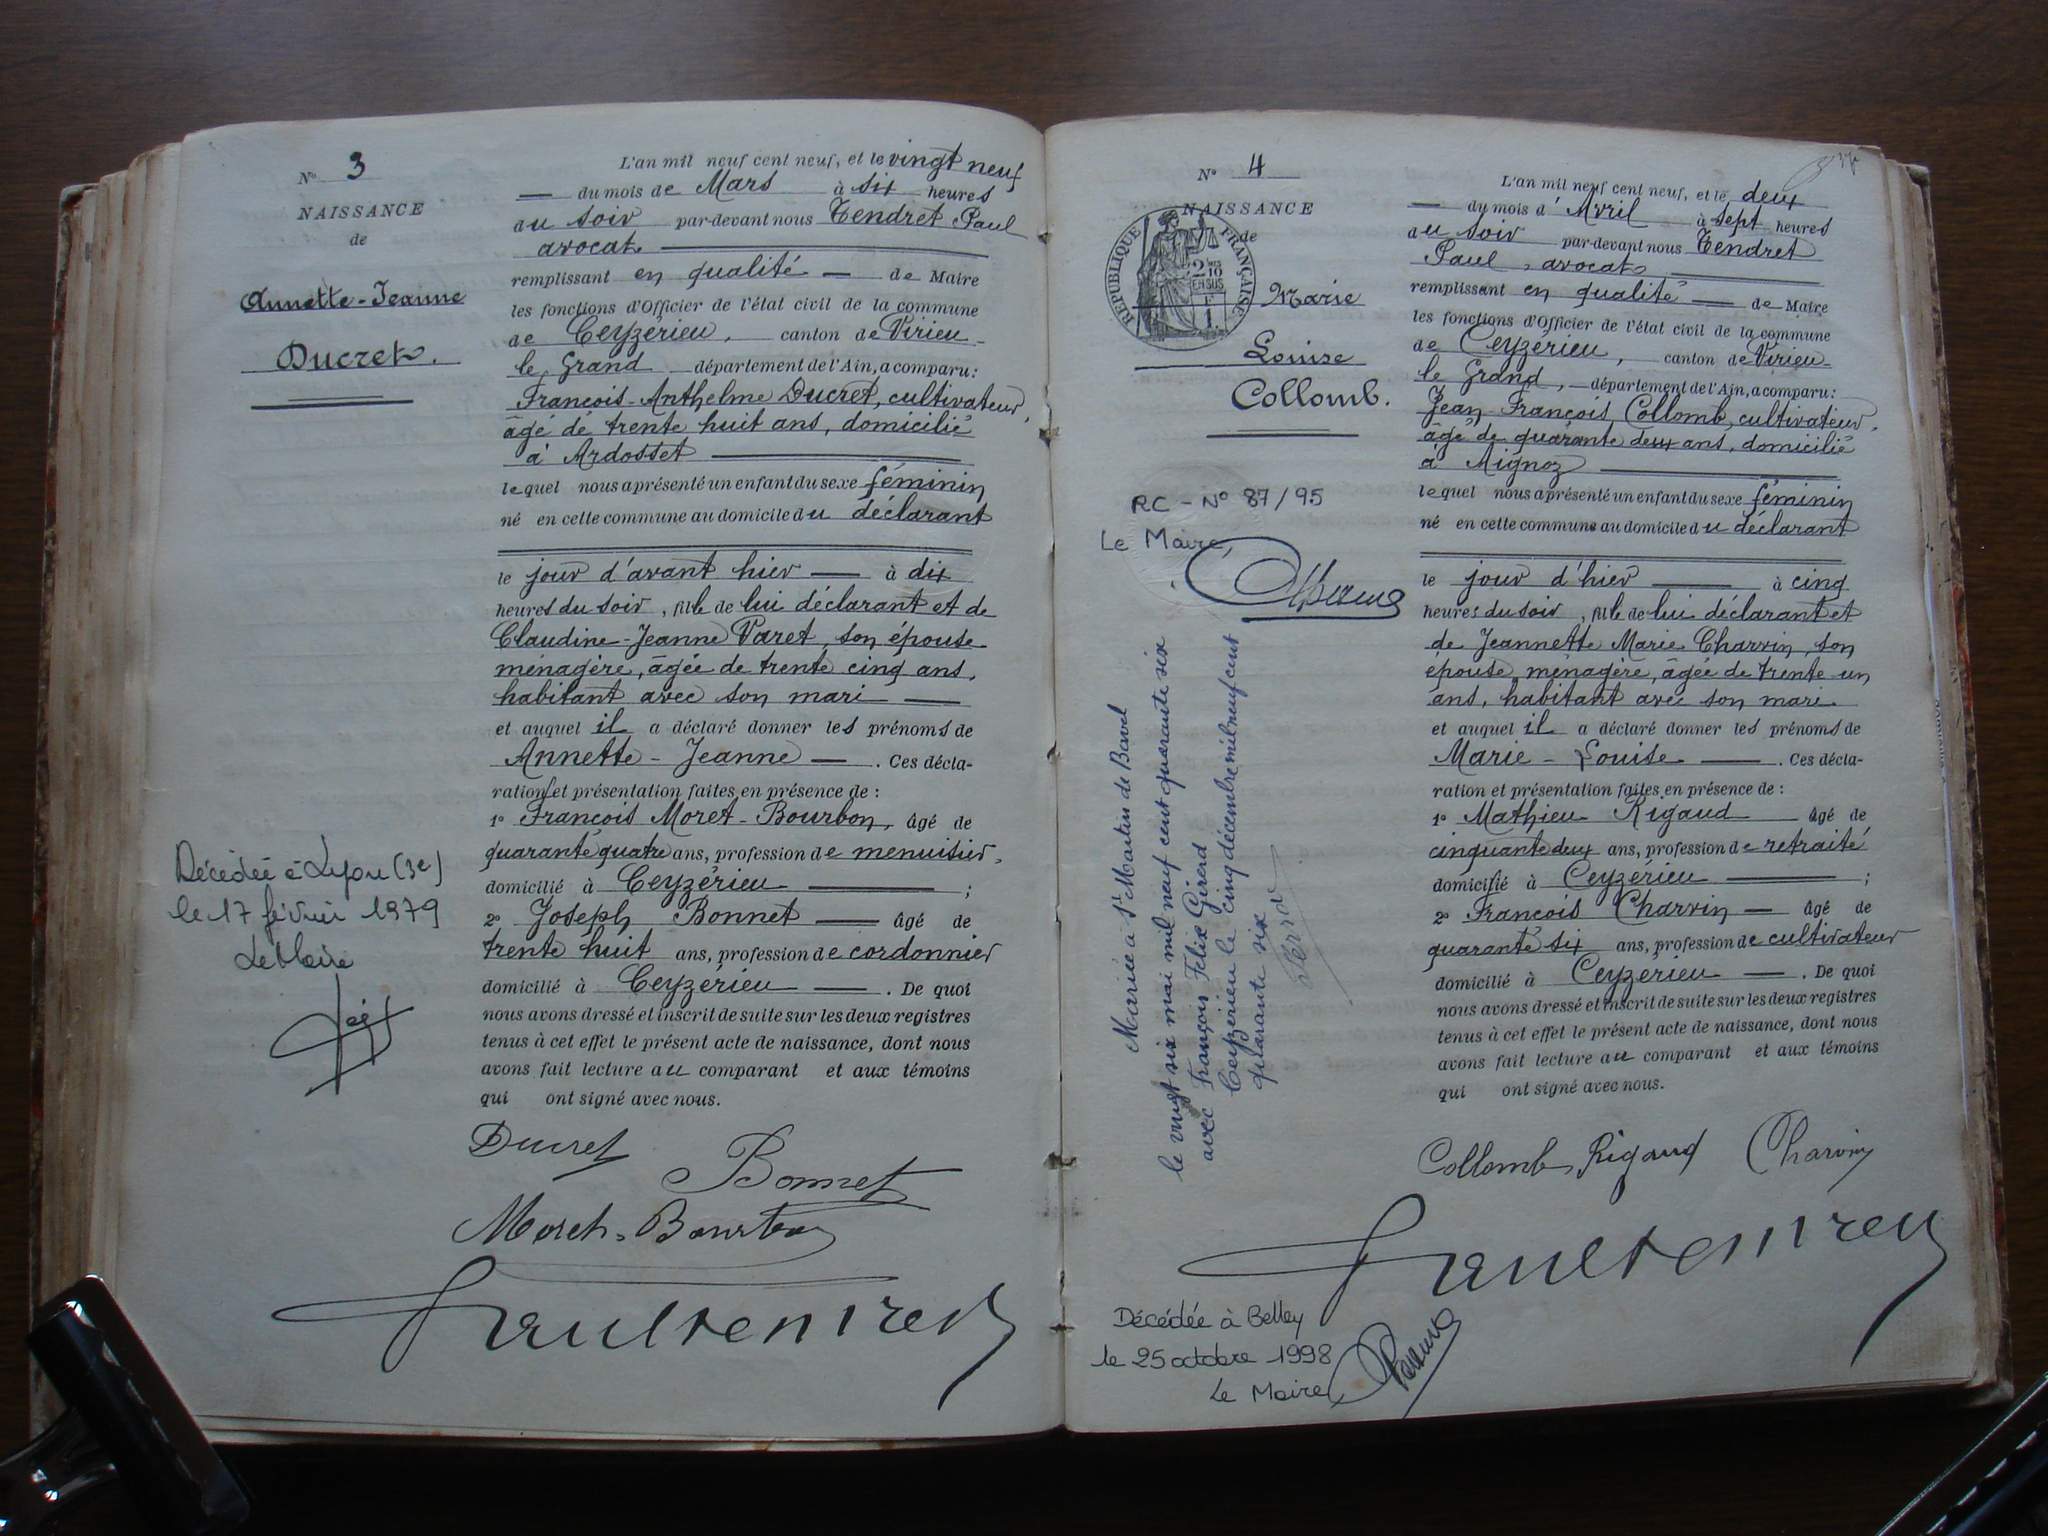 N° 3
NAISSANCE
de
Annette-Jeanne
Ducret.
L'an mil neuf cent neuf, et le vingt neuf
— du mois de Mars à six heures
du soir par-devant nous Tendret Paul
avocat
remplissant en qualité — de Maire
les fonctions d'Officier de l'état civil de la commune
de Ceyzerieu, canton de Virieu-
le Grand département de l'Ain, a comparu :
François-Anthelme Ducret, cultivateur,
âgé de trente huit ans, domicilié
à Ardosset
lequel nous a présenté un enfant du sexe féminin
né en cette commune au domicile du déclarant
le jour d'avant hier — à dix
heures du soir, fille de lui déclarant et de
Claudine-Jeanne Varet, son épouse
ménagère, âgée de trente cinq ans,
habitant avec son mari —
et auquel il a déclaré donner les prénoms de
Annette-Jeanne — . Ces décla-
ration et présentation faites en présence de :
1° François Moret-Bourbon, âgé de
quarante quatre ans, profession de menuisier,
domicilié à Ceyzérieu — ;
2° Joseph Bonnet — âgé de
trente huit ans, profession de cordonnier
domicilié à Ceyzérieu — . De quoi
nous avons dressé et inscrit de suite sur les deux registres
tenus à cet effet le présent acte de naissance, dont nous
avons fait lecture au comparant et aux témoins
qui ont signé avec nous.
Décédée à Lyon (3e)
le 17 février 1979
Le Maire
Ducret
Bonnet
Moret-Bourbon
N° 4
NAISSANCE
de
RÉPUBLIQUE FRANÇAISE
2/10
EN SUS
Marie
Louise
Collomb.
L'an mil neuf cent neuf, et le deux
— du mois d'Avril à sept heures
du soir par-devant nous Tendret
Paul, avocat
remplissant en qualité — de Maire
les fonctions d'Officier de l'état civil de la commune
de Ceyzérieu, canton de Virieu-
le Grand, — département de l'Ain, a comparu :
Jean-François Collomb, cultivateur,
âgé de quarante deux ans, domicilié
à Aignoz
lequel nous a présenté un enfant du sexe féminin
né en cette commune au domicile du déclarant
le jour d'hier — à cinq
heures du soir, fille de lui déclarant et
de Jeannette Marie Charvin, son
épouse ménagère, âgée de trente un
ans, habitant avec son mari.
et auquel il a déclaré donner les prénoms de
Marie-Louise — . Ces décla-
ration et présentation faites en présence de :
1° Mathieu Rigaud âgé de
cinquante deux ans, profession de retraité
domicilié à Ceyzérieu — ;
2° François Charvin — âgé de
quarante six ans, profession de cultivateur
domicilié à Ceyzérieu — . De quoi
nous avons dressé et inscrit de suite sur les deux registres
tenus à cet effet le présent acte de naissance, dont nous
avons fait lecture au comparant et aux témoins
qui ont signé avec nous.
RC - N° 87/95
Le Maire,
Mariée à St Martin de Bavel
le vingt six mai mil neuf cent quarante six
avec François Felix Girerd
Ceyzérieu le cinq décembre mil neuf cent
quarante six
Collomb Rigaud Charvin
Décédée à Belley
le 25 octobre 1998
Le Maire